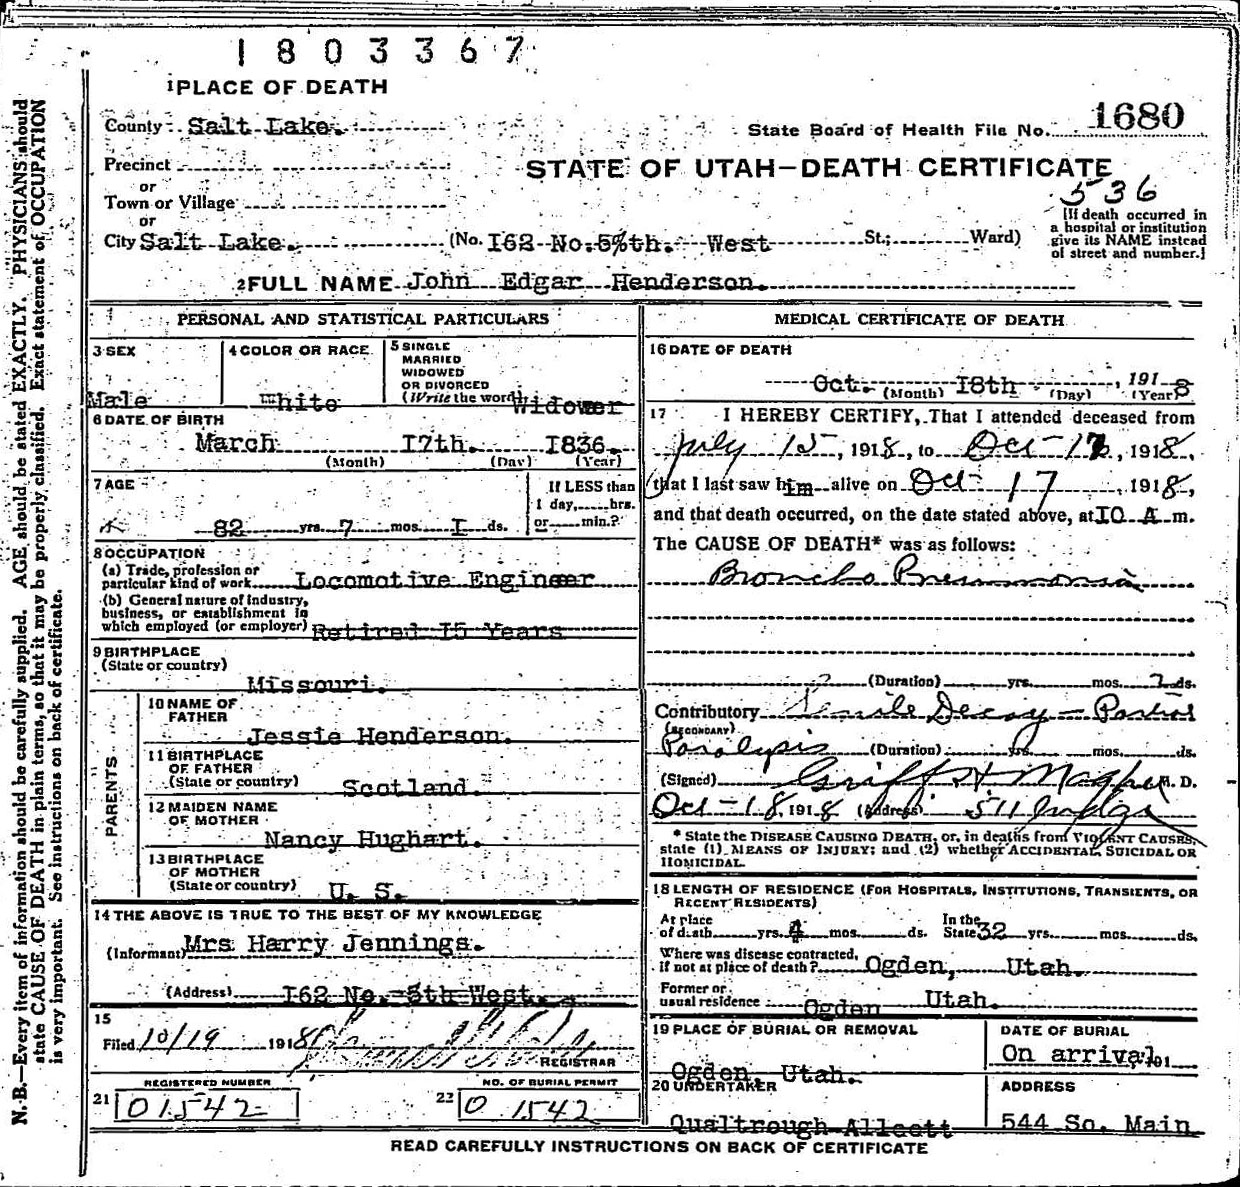 1803367
1 PLACE OF DEATH
County Salt Lake.
State Board of Health File No. 1680
Precinct
STATE OF UTAH—DEATH CERTIFICATE
or
536
Town or Village
or
City Salt Lake. (No. I62 No. 5%th. West St.; Ward)
[If death occurred in a hospital or institution give its NAME instead of street and number.]
2 FULL NAME John Edgar Henderson.
PERSONAL AND STATISTICAL PARTICULARS
3 SEX
Male
4 COLOR OR RACE
White
5 SINGLE
MARRIED
WIDOWED
OR DIVORCED
(Write the word) Widower
6 DATE OF BIRTH
March I7th. I836.
(Month) (Day) (Year)
7 AGE
82 yrs. 7 mos. I ds.
If LESS than
1 day, hrs.
or min.?
8 OCCUPATION
(a) Trade, profession or
particular kind of work Locomotive Engineer
(b) General nature of industry,
business, or establishment in
which employed (or employer) Retired I5 Years
9 BIRTHPLACE
(State or country)
Missouri.
PARENTS
10 NAME OF
FATHER
Jessie Henderson.
11 BIRTHPLACE
OF FATHER
(State or country) Scotland.
12 MAIDEN NAME
OF MOTHER
Nancy Hughart.
13 BIRTHPLACE
OF MOTHER
(State or country) U. S.
14 THE ABOVE IS TRUE TO THE BEST OF MY KNOWLEDGE
(Informant) Mrs Harry Jennings.
(Address) I62 No. 5th West.
15
Filed 10/19 1918
REGISTRAR
REGISTERED NUMBER
21 01542
NO. OF BURIAL PERMIT
22 0 1542
MEDICAL CERTIFICATE OF DEATH
16 DATE OF DEATH
Oct. I8th , 191 8
(Month) (Day) (Year)
17 I HEREBY CERTIFY, That I attended deceased from
July 15, 1918, to Oct 17, 1918,
that I last saw him alive on Oct 17, 1918,
and that death occurred, on the date stated above, at IO A m.
The CAUSE OF DEATH* was as follows:
Broncho Pneumonia
(Duration) yrs. mos. 2 ds.
Contributory Senile Decay - Partial
(SECONDARY)
Paralysis (Duration) yrs. mos. ds.
(Signed) M. D.
Oct-18, 1918 (Address) 511
* State the DISEASE CAUSING DEATH, or, in deaths from VIOLENT CAUSES,
state (1) MEANS OF INJURY; and (2) whether ACCIDENTAL, SUICIDAL OR
HOMICIDAL.
18 LENGTH OF RESIDENCE (FOR HOSPITALS, INSTITUTIONS, TRANSIENTS, OR
RECENT RESIDENTS)
At place
of death yrs. 4 mos. ds. In the State 32 yrs. mos. ds.
Where was disease contracted,
if not at place of death? Ogden, Utah.
Former or
usual residence Ogden Utah.
19 PLACE OF BURIAL OR REMOVAL
Ogden, Utah.
DATE OF BURIAL
On arrival, 191
20 UNDERTAKER
Qualtrough-Allcott
ADDRESS
544 So. Main
READ CAREFULLY INSTRUCTIONS ON BACK OF CERTIFICATE
N. B.—Every item of information should be carefully supplied. AGE should be stated EXACTLY. PHYSICIANS should
state CAUSE OF DEATH in plain terms, so that it may be properly classified. Exact statement of OCCUPATION
is very important. See instructions on back of certificate.